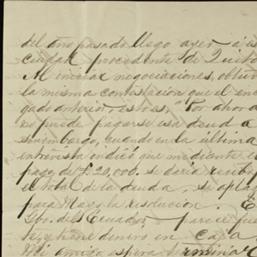 del año pasado llego ayer á es
ciudad procedente de Quito
Al iniciar negociaciones, obtuv
la misma contestacion que el enc
gado anterior, esto es, "Por ahora
no puede pagarse esa deuda"
sin embargo, cuando en la última
entrevista indicó que mediante el
pago de £20,000. se daria recibo
el total de la deuda, se aplaz
para Mayo la resolucion. E
Gbo. del Ecuador parece fue
te, y tiene dinero en caja
Mi amigo espera terminar